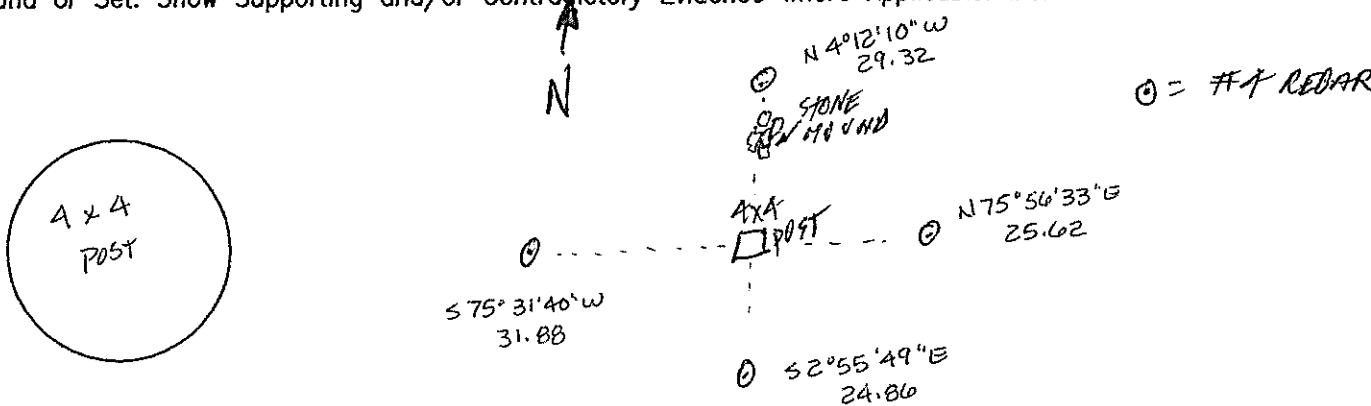 und or Set. Show Supporting and/or Contradictory Evidence Where Applicable
N
N 4°12'10" W
29.32
STONE
MOUND
⊙ = #4 REBAR
4 x 4
POST
4x4
POST
N 75°56'33" E
25.62
S 75°31'40" W
31.88
S 2°55'49" E
24.86